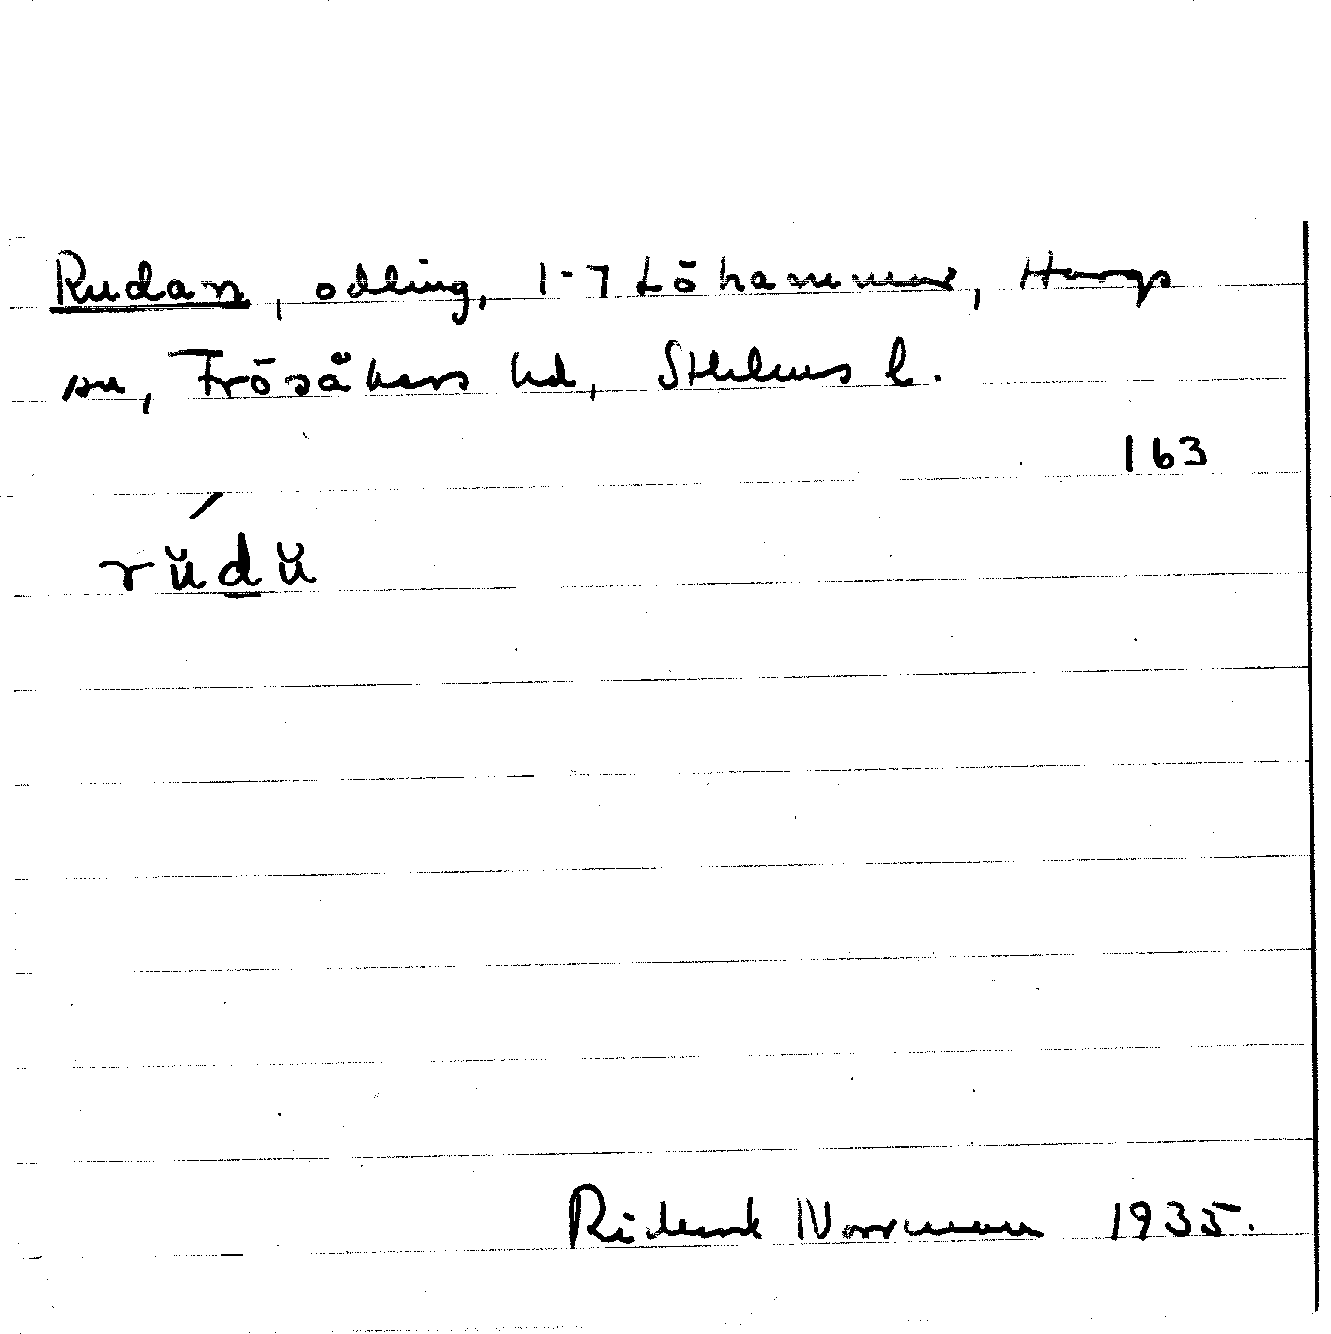 Rudan, odling, 1-7 Löhammar, Hargs
sn, Frösåkers hd, Sthlms l.
163
rŭ́d̲ŭ
Rickard Norrman 1935.